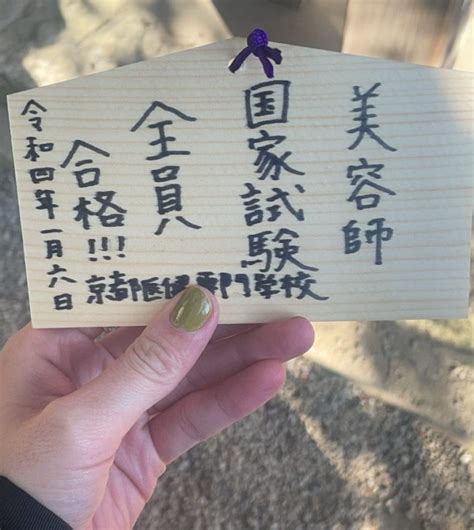 美容師
国家試験
全員
合格!!!
令和四年一月六日
京都医健専門学校